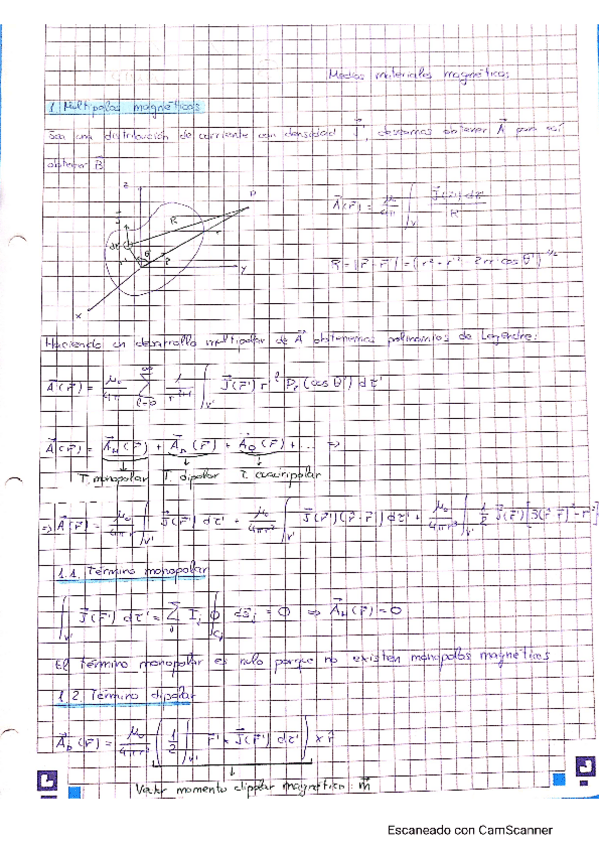 Medios materiales magnéticos
1. Multipolos magnéticos
Sea una distribución de corriente con densidad J⃗, deseamos obtener A⃗ para así
obtener B⃗
z
P
R
A⃗(r⃗) = μ₀/4π ∫_V' J⃗(r⃗') dτ'/R
dτ'
r
θ'
r'
y
R = |r⃗ - r⃗'| = (r² + r'² - 2rr' cos θ')^1/2
x
Haciendo un desarrollo multipolar de A⃗ obtenemos polinomios de Legendre:
A⃗(r⃗) = μ₀/4π Σ_{l=0}^∞ 1/r^{l+1} ∫_V' J⃗(r⃗') r'^l P_l(cos θ') dτ'
A⃗(r⃗) = A⃗_M(r⃗) + A⃗_D(r⃗) + A⃗_Q(r⃗) + ... ⇒
T. monopolar T. dipolar T. cuadripolar
⇒ A⃗(r⃗) = μ₀/4πr ∫_V' J⃗(r⃗') dτ' + μ₀/4πr² ∫_V' J⃗(r⃗')(r̂·r⃗') dτ' + μ₀/4πr³ ∫_V' 1/2 J⃗(r⃗')[3(r̂·r⃗')² - r'²]
1.1. Término monopolar
∫_V' J⃗(r⃗') dτ' = Σ_j I_j ∮_{C_j} ds⃗_j = 0 ⇒ A⃗_M(r⃗) = 0
El término monopolar es nulo porque no existen monopolos magnéticos
1.2. Término dipolar
A⃗_D(r⃗) = μ₀/4πr² (1/2 ∫_V' r⃗' × J⃗(r⃗') dτ') × r̂
Vector momento dipolar magnético: m⃗
Escaneado con CamScanner